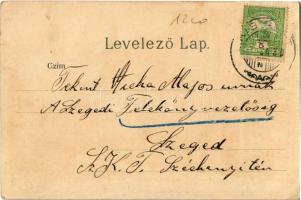 1200
Levelező Lap.
Czim
Tekint. Hicka Majos urnak
A Szegedi Telekönyvvezelőség
Szeged
Sz. K. T. Széchenyi tér